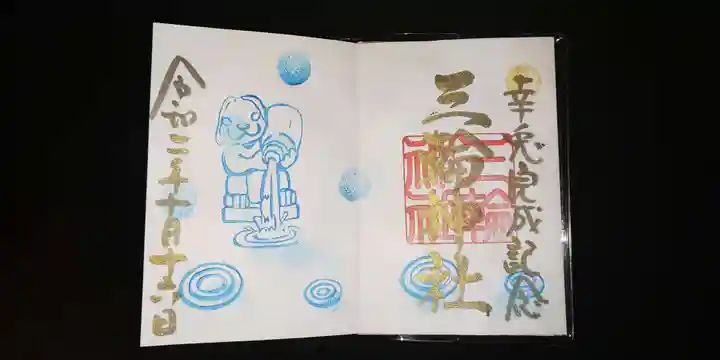 幸兎完成記念
三輪神社
三輪神社
令和二年十月十六日